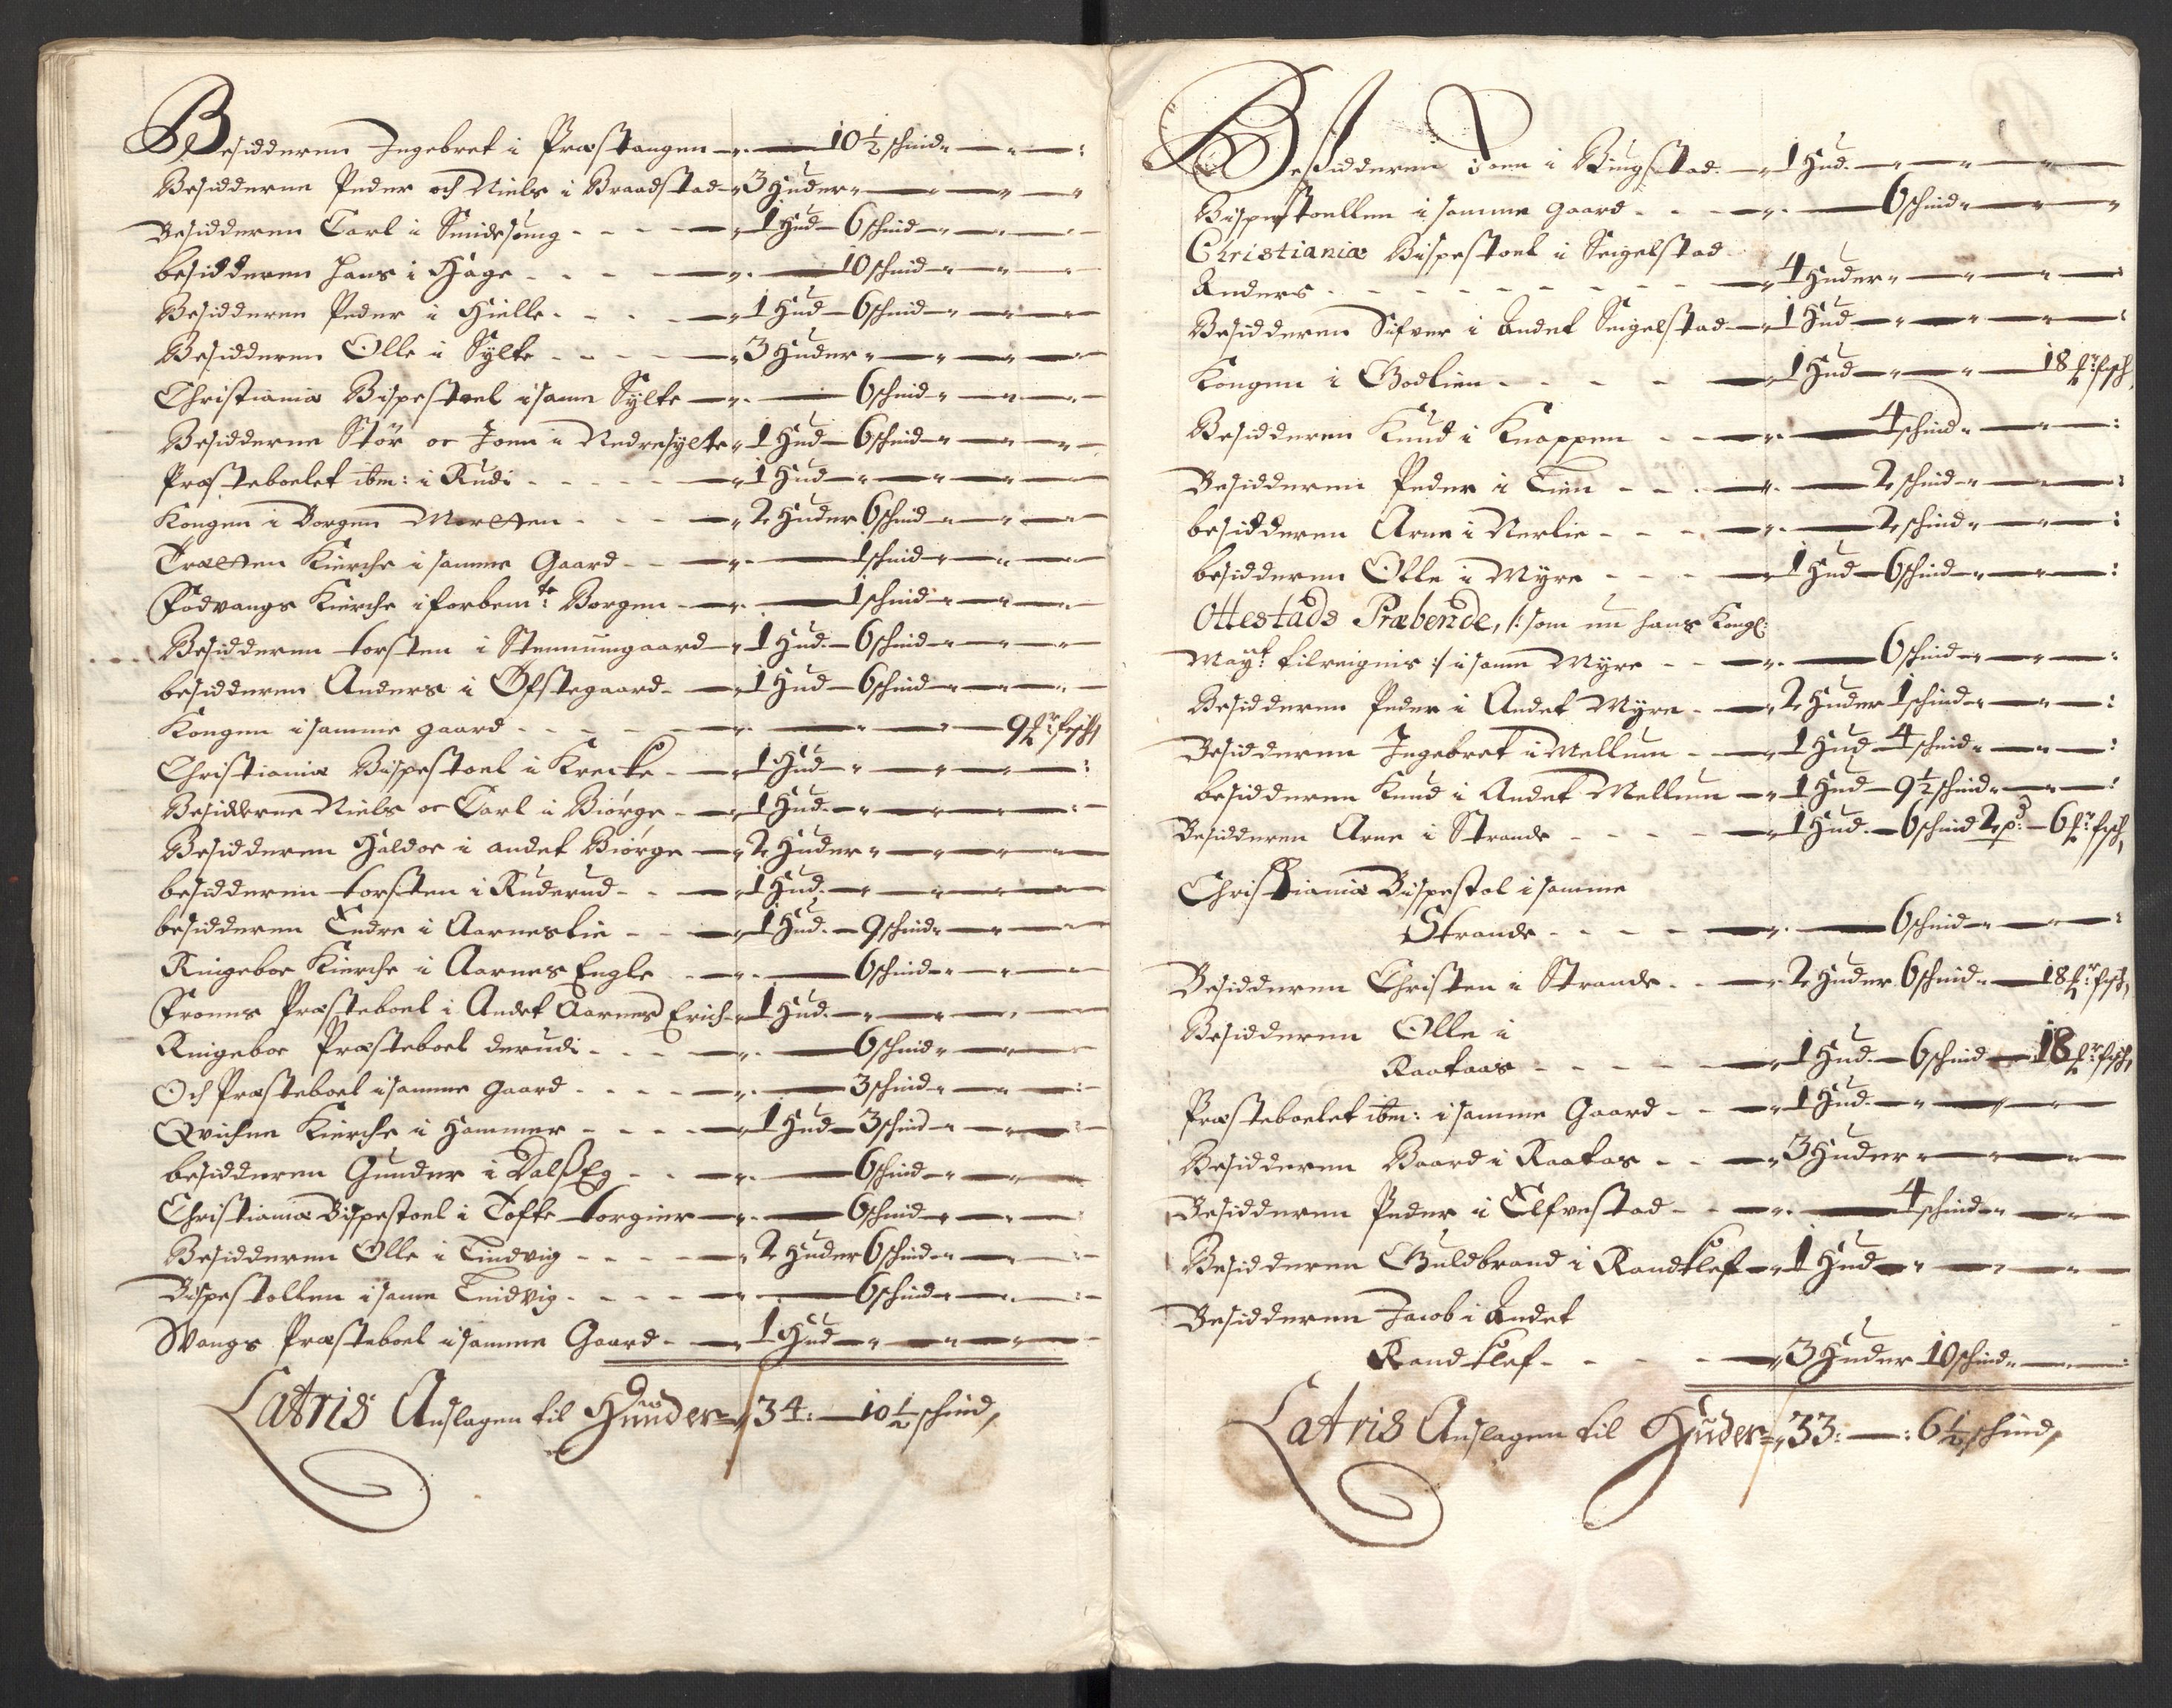 Besidderen Ingebret i Præstangen — 10½ schind
Besidderne Peder och Niels i Braadstad — 3 Huder
Besidderen Carl i — 1 Hud — 6 schind
besidderen Hans i Hage — 10 schind
Besidderen Peder i Hielle — 1 Hud — 6 schind
Besidderen Olle i Sylte — 3 Huder
Christiania Bispestoel i samme Sylte — 6 schind
Besidderne Stör oc Joen i Nedresylte — 1 Hud — 6 schind
Præsteboelet ibm: i Rudi — 1 Hud
Kongen i Borgen Morten — 2 Huder 6 schind
Trætten Kierche i samme Gaard — 1 schind
Fodvangs Kierche i forbemte: Borgen — 1 schind
Besidderen torsten i Stenumgaard — 1 Hud — 6 schind
besidderen Anders i Øfstegaard — 1 Hud — 6 schind
Kongen i samme gaard — 9 fr: fisch
Christiania Bispestoel i Krecke — 1 Hud
Besidderne Niels oc Carl i Biørge — 1 Hud
Besidderen Haldor i andet Biørge — 2 Huder
besidderen torsten i Ruderud — 1 Hud
besidderen Endre i Aarneslie — 1 Hud — 9 schind
Ringeboe Kierche i Aarnes Engle — 6 schind
Frons Præsteboel i Andet Aarnes Erich — 1 Hud
Ringeboe Præsteboel derudi — 6 schind
Och Præsteboel i samme gaard — 3 schind
Qvichne Kierche i Hammer — 1 Hud — 3 schind
besidderen Gunder i Dalß Eg — 6 schind
Christiania Bispestoel i Tofte torgier — 6 schind
Besidderen Olle i Lindvig — 2 Huder 6 schind
Bispestollen i samme Lindvig — 6 schind
Wangs Præsteboel i samme Gaard — 1 Hud
Latris Anslagen til Huuder 34: — 10½ schind
Besidderen Joen i Ringstad — 1 Hud
Bispestoellen i samme gaard — 6 schind
Christiania Bispestoel i Seigelstad
Anders — 4 Huder
Besidderen Sifver i Andet Seigelstad — 1 Hud
Kongen i Godlien — 1 Hud — 18 fr: fisch
Besidderen Knud i Knappen — 4 schind
Besidderen Peder i Lien — 2 schind
besidderen Arne i Nerlie — 2 schind
besidderen Olle i Myre — 1 Hud — 6 schind
Ottestads Præbende, /: som nu hans Kongl:
Mayt: tilreignis :/ i samme Myre — 6 schind
Besidderen Peder i Andet Myre — 2 Huder 1 schind
Besidderen Ingebret i Mellum — 1 Hud — 4 schind
besidderen Knud i Andet Mellum — 1 Hud — 9½ schind
Besidderen Arne i Strande — 1 Hud — 6 schind 2 pd: — 6 fr: fisch
Christiania Bispestol i samme
Strande — 6 schind
Besidderen Christen i Strande — 2 Huder 6 schind — 18 fr: fisch
Besidderen Olle i
Raataas — 1 Hud — 6 schind — 18 fr: fisch
Præsteboelet ibm: i samme Gaard — 1 Hud
Besidderen Baard i Raatas — 3 Huder
Besidderen Peder i Elfvestad — 4 schind
Besidderen Guldbrand i Randklef — 1 Hud
Besidderen Jacob i Andet
Randklef — 3 Huder 10 schind
Latris Anslagen til Huder 33: — : 6½ schind